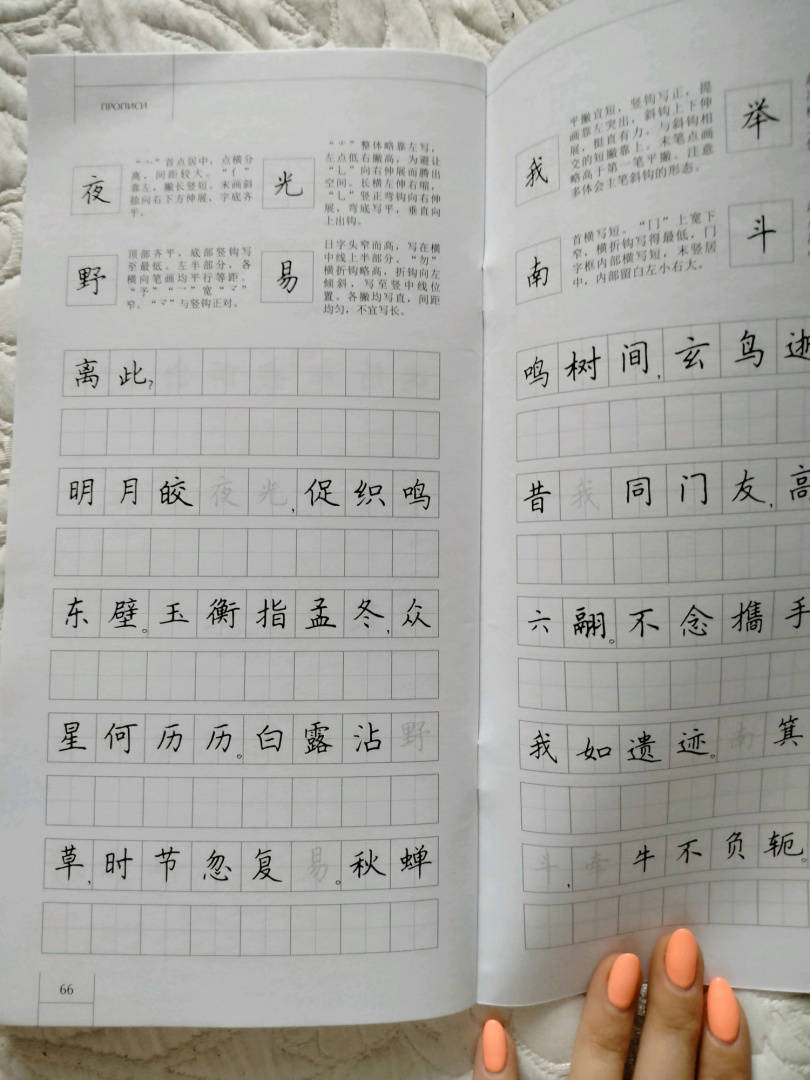 ПРОПИСИ
夜
“亠”首点居中，点横分
离，间距较大。“亻”
靠左，撇长竖短，末画斜
捺向右下方伸展，字底齐
平。
光
“⺌”整体略靠左写，
左点低右撇高，为避让
“乚”向右伸展而腾出
空间。长横左伸右缩，
“乚”竖正弯钩向右伸
展，弯底写平，垂直向
上出钩。
野
顶部齐平，底部竖钩写
至最低。左半部分，各
横向笔画均平行等距。
“予”“乛”宽“龴”
窄。“龴”与竖钩正对。
易
日字头窄而高，写在横
中线上半部分。“勿”
横折钩略高，折钩向左
倾斜，写至竖中线位
置，各撇均写直，间距
均匀，不宜写长。
离此？
明月皎夜光，促织鸣
东壁。玉衡指孟冬，众
星何历历。白露沾野
草，时节忽复易。秋蝉
66
我
平撇宜短，竖钩写正，提
画靠左突出，斜钩上下伸
展，挺直有力。与斜钩相
交的短撇靠上。末笔点画
略高于第一笔平撇。注意
多体会主笔斜钩的形态。
举
南
首横写短。“冂”上宽下
窄，横折钩写得最低，门
字框内部横写短，末竖居
中，内部留白左小右大。
斗
鸣树间，玄鸟逝
昔我同门友，高
六翮。不念攜手
我如遗迹。南箕
斗，牵牛不负轭。